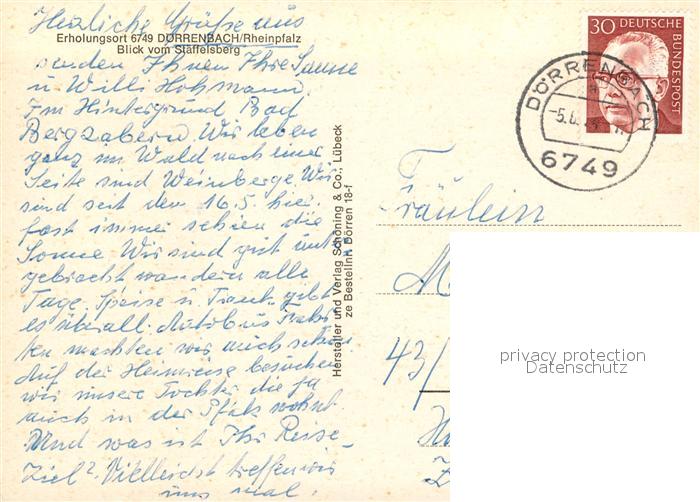 Herzliche Grüße aus
Erholungsort 6749 DÖRRENBACH/Rheinpfalz
Blick vom Stäffelsberg
senden Ihnen Ihre Sanne
u. Willi Hohmann
Im Hintergrund Bad
Bergzabern. Wir leben
ganz im Wald nach einer
Seite sind Weinberge. Wir
sind seit dem 16.5. hier.
fast immer schien die
Sonne. Wir sind gut unter
gebracht wandern alle
Tage. Speise u. Trank gibt
es überall. Autobus Fahr
ten machten wir auch schon
Auf der Heimreise besuchen
wir unsere Tochter die ja
auch in der Pfalz wohnt.
Und was ist Ihr Reise-
Ziel? Vielleicht treffen wir
uns mal.
Hersteller und Verlag Schöning & Co., Lübeck
ze Bestellnr. Dörren 18-f
30 DEUTSCHE
BUNDESPOST
DÖRRENBACH
6749
Fräulein
M
43/
H
privacy protection
Datenschutz